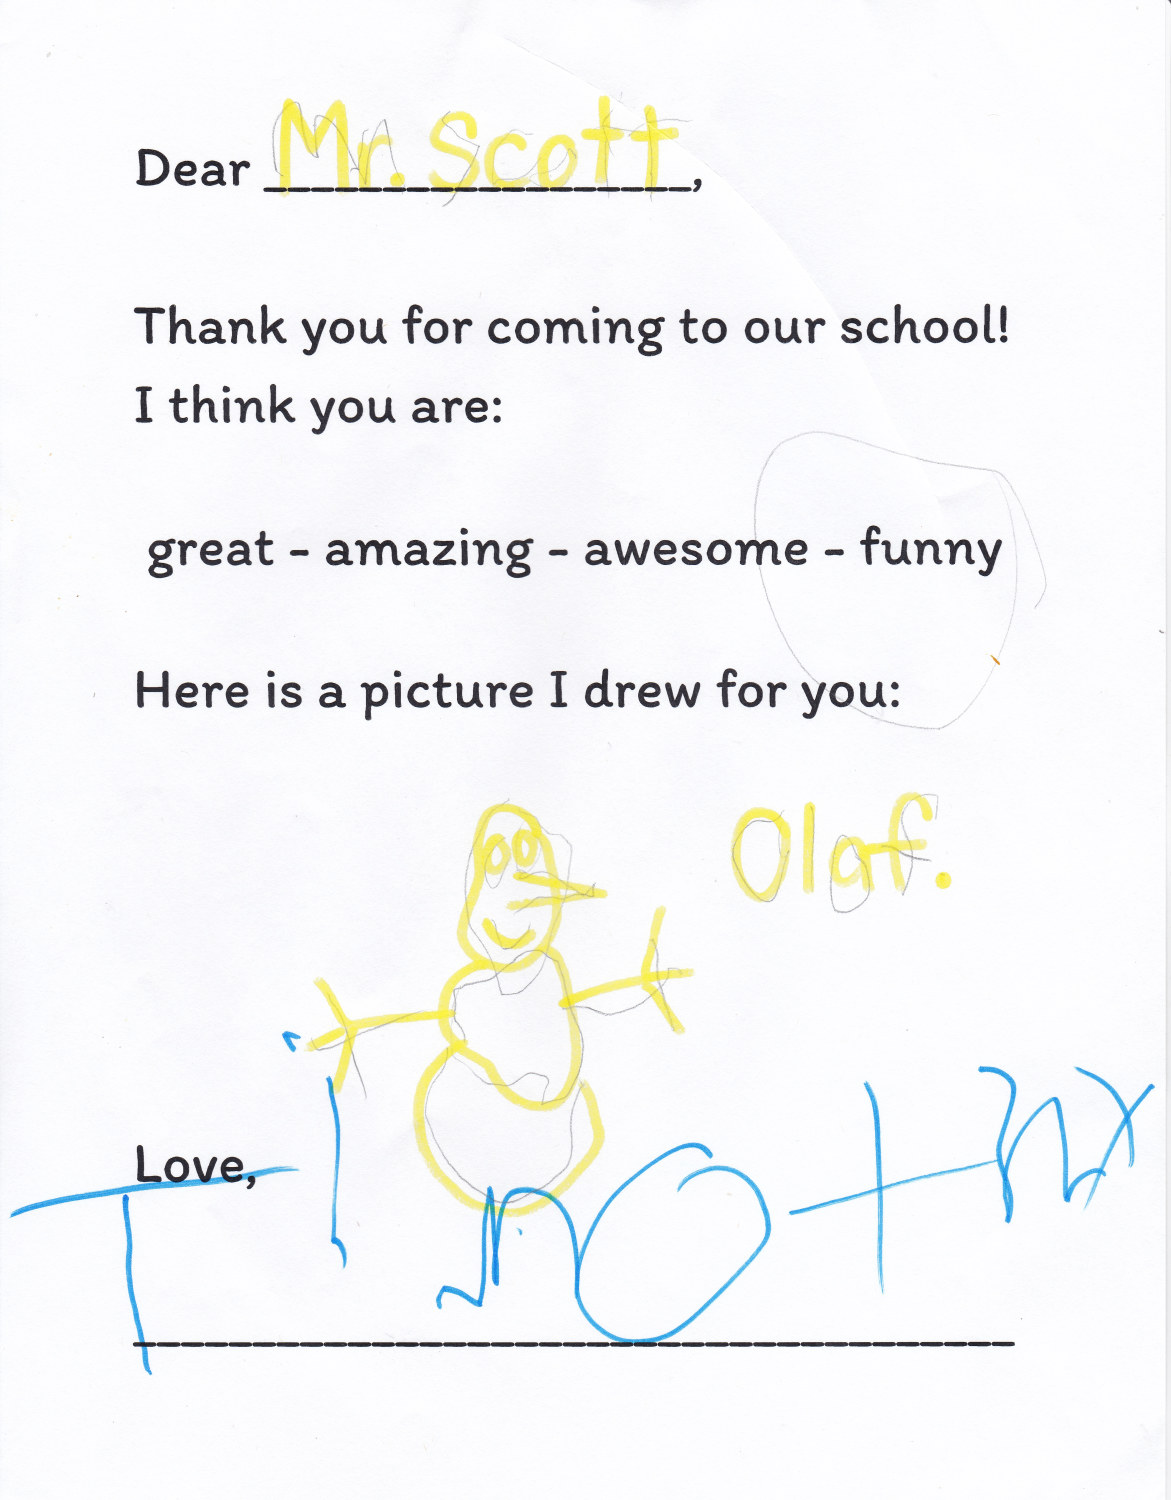 Dear Mr. Scott,
Thank you for coming to our school!
I think you are:
great - amazing - awesome - funny
Here is a picture I drew for you:
Olaf.
Love,
Timothy